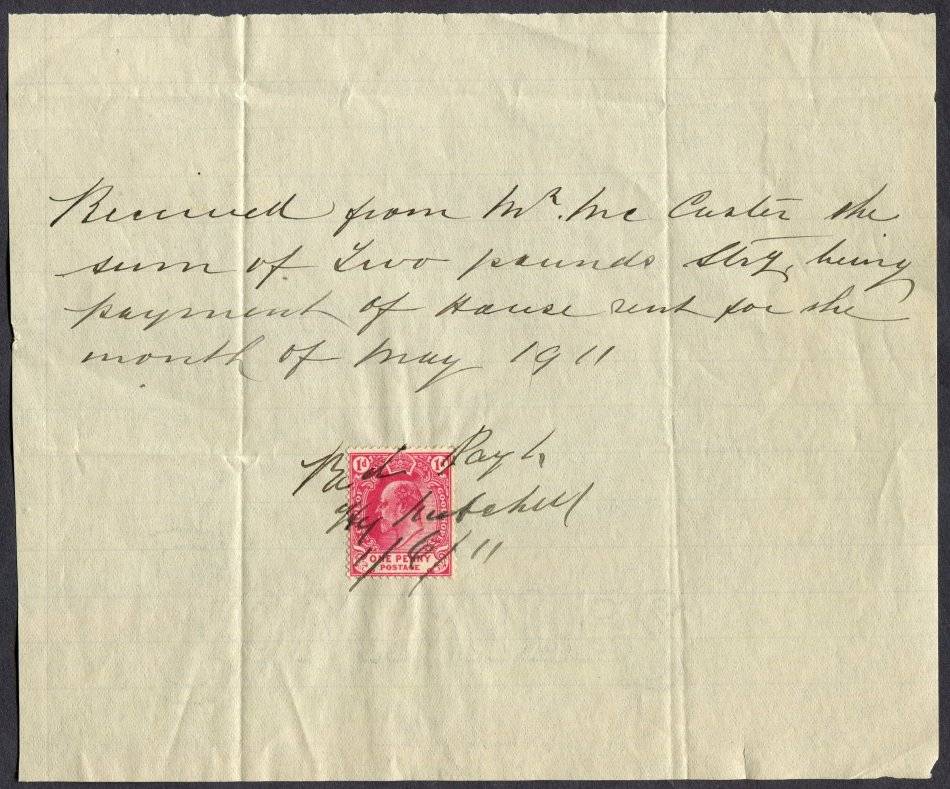 Received from Mr. Mc Custer the
sum of Two pounds Strg, being
payment of House rent for the
month of May 1911
Recd Payt,
Hy Mitchell
1/6/11
1d 1d
ONE PENNY
POSTAGE